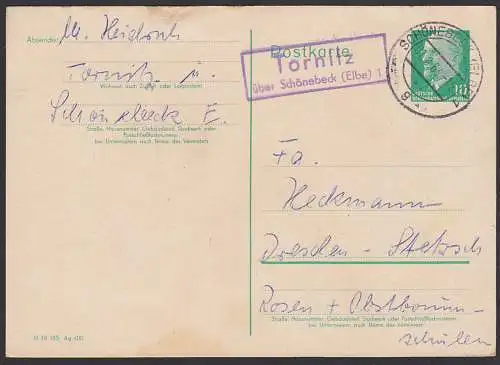 Absender: M. Heidrich
Tornitz ü.
Wohnort auch Zustell- oder Leitpostamt
Schönebeck E.
Straße, Hausnummer, Gebäudeteil, Stockwerk oder
Postschließfachnummer;
bei Untermietern auch Name des Vermieters
Postkarte
Tornitz
über Schönebeck (Elbe) 1
SCHÖNEBECK
10
Fa.
Heckmann
Dresden - Stetzsch
Rosen + Obstbaum-
Straße, Hausnummer, Gebäudeteil, Stockwerk oder Postschließfachnummer;
bei Untermietern auch Name des Vermieters
schulen